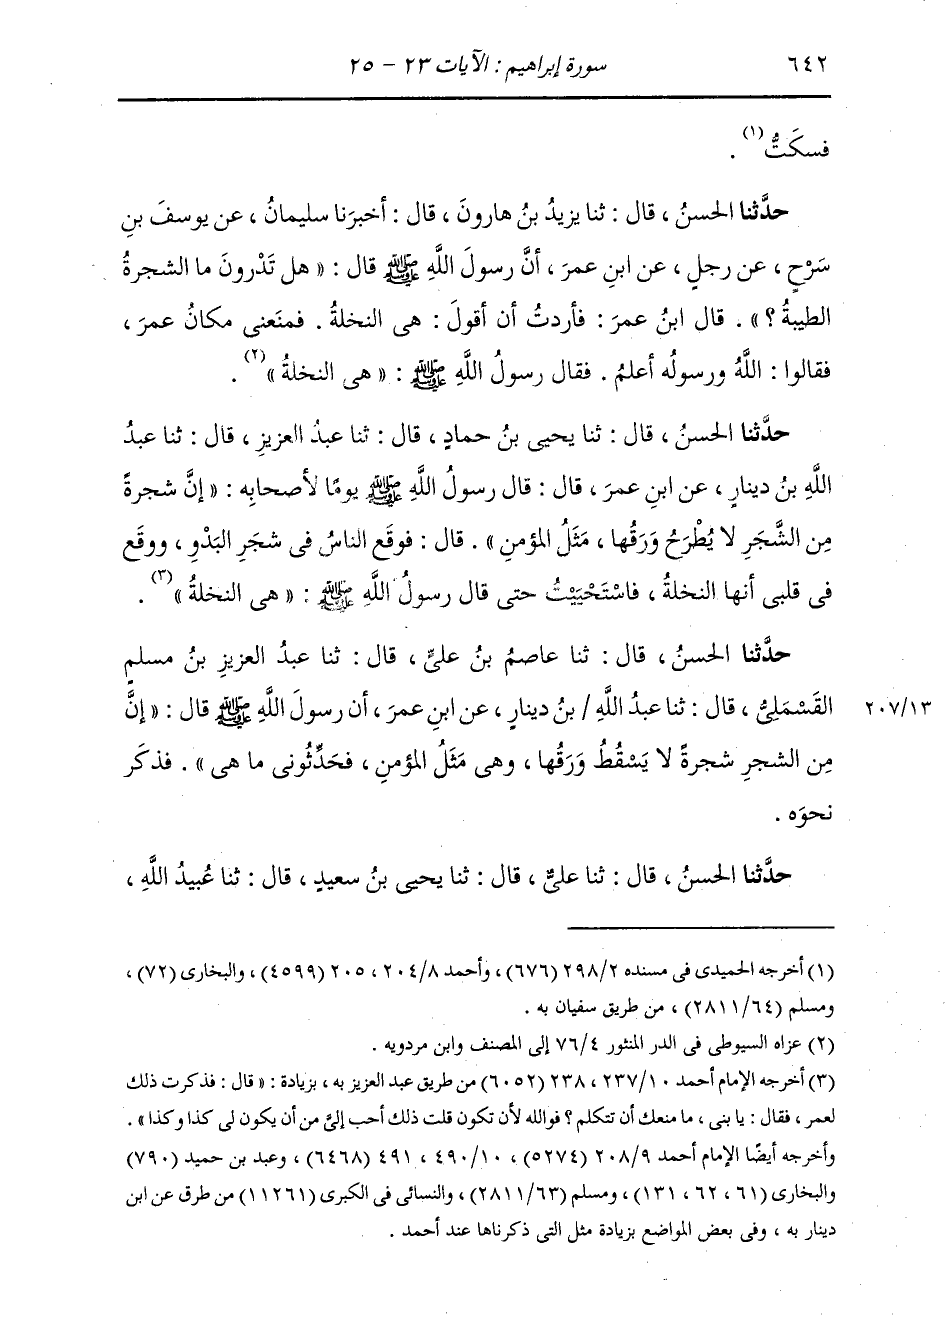 ٦٤٢ سورة إبراهيم : الآيات ٢٣ - ٢٥
فسكَتُّ(١) .
حدَّثنا الحسنُ ، قال : ثنا يزيدُ بنُ هارونَ ، قال : أخبرَنا سليمانُ ، عن يوسفَ بنِ
سَرْحٍ ، عن رجلٍ ، عن ابنِ عمرَ ، أنَّ رسولَ اللَّهِ ﷺ قال : « هل تَدْرونَ ما الشجرةُ
الطيبةُ ؟ » . قال ابنُ عمرَ : فأردتُ أن أقولَ : هى النخلةُ . فمنَعنى مكانُ عمرَ ،
فقالوا : اللَّهُ ورسولُه أعلمُ . فقال رسولُ اللَّهِ ﷺ : « هى النخلةُ »(٢) .
حدَّثنا الحسنُ ، قال : ثنا يحيى بنُ حمادٍ ، قال : ثنا عبدُ العزيزِ ، قال : ثنا عبدُ
اللَّهِ بنُ دينارٍ ، عن ابنِ عمرَ ، قال : قال رسولُ اللَّهِ ﷺ يومًا لأصحابِه : « إنَّ شجرةً
مِن الشَّجَرِ لا يُطْرَحُ وَرَقُها ، مَثَلُ المؤمنِ » . قال : فوقَع الناسُ فى شجَرِ البَدْوِ ، ووقَع
فى قلبى أنها النخلةُ ، فاسْتَحْيَيْتُ حتى قال رسولُ اللَّهِ ﷺ : « هى النخلةُ »(٣) .
حدَّثنا الحسنُ ، قال : ثنا عاصمُ بنُ علىٍّ ، قال : ثنا عبدُ العزيزِ بنُ مسلمٍ
٢٠٧/١٣ القَسْمَلِىُّ ، قال : ثنا عبدُ اللَّهِ / بنُ دينارٍ ، عن ابنِ عمرَ ، أن رسولَ اللَّهِ ﷺ قال : « إنَّ
مِن الشجرِ شجرةً لا يَسْقُطُ وَرَقُها ، وهى مَثَلُ المؤمنِ ، فحَدِّثُونى ما هى » . فذكَر
نحوَه .
حدَّثنا الحسنُ ، قال : ثنا علىٌّ ، قال : ثنا يحيى بنُ سعيدٍ ، قال : ثنا عُبيدُ اللَّهِ ،
(١) أخرجه الحميدى فى مسنده ٢٩٨/٢ (٦٧٦) ، وأحمد ٢٠٤/٨ ، ٢٠٥ (٤٥٩٩) ، والبخارى (٧٢) ،
ومسلم (٢٨١١/٦٤) ، من طريق سفيان به .
(٢) عزاه السيوطى فى الدر المنثور ٧٦/٤ إلى المصنف وابن مردويه .
(٣) أخرجه الإمام أحمد ٢٣٧/١٠ ، ٢٣٨ (٦٠٥٢) من طريق عبد العزيز به ، بزيادة : « قال : فذكرت ذلك
لعمر ، فقال : يا بنى ، ما منعك أن تتكلم ؟ فوالله لأن تكون قلت ذلك أحب إلىَّ من أن يكون لى كذا وكذا » .
وأخرجه أيضًا الإمام أحمد ٢٠٨/٩ (٥٢٧٤) ، ٤٩٠/١٠ ، ٤٩١ (٦٤٦٨) ، وعبد بن حميد (٧٩٠)
والبخارى (٦١ ، ٦٢ ، ١٣١) ، ومسلم (٢٨١١/٦٣) ، والنسائى فى الكبرى (١١٢٦١) من طرق عن ابن
دينار به ، وفى بعض المواضع بزيادة مثل التى ذكرناها عند أحمد .